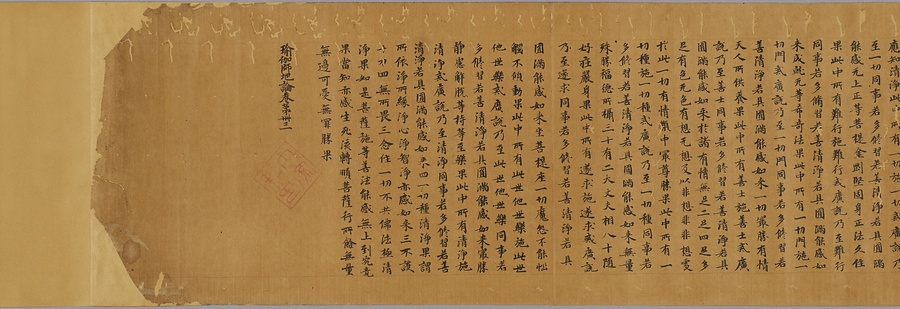 至一切同事若多修習若善清淨若具圓滿
能感无上正等菩提金剛堅固身正法久住
果此中所有難行施難行戒廣說乃至難行
同事若多脩習若善清淨若具圓滿能感如
来成就无等希奇法果此中所有一切門施一
切門戒廣說乃至一切門同事若多修習若
善清淨若具圓滿能感如来一切最勝有情
天人所供養果此中所有善士施善士戒廣
說乃至善士同事若多修習若善清淨若具
圓滿能感如来於諸有情無足二足四足多
足有色无色有想无想非想非非想處
於此一切有情最中為尊勝果此中所有一
切種施一切種戒廣說乃至一切種同事若
多修習若善清淨若具圓滿能感如来無量
殊勝福德所攝三十有二大丈夫相八十隨
好莊嚴身果此中所有遂求施遂求戒廣說
乃至遂求同事若多修習若善清淨若具
圓滿能感如来坐菩提座一切魔怨不能惱
觸不傾動果此中所有此世他世樂施此世
他世樂戒廣說乃至此世他世樂同事若
多修習若善清淨若具圓滿能感如来最勝
靜慮解脫等持等至樂果此中所有清淨施
清淨戒廣說乃至清淨同事若多修習若善
清淨若具圓滿能感如来四一切種清淨果謂
所依淨所緣淨心淨智淨亦感如来三不護
十力四無所畏三念住一切不共佛法極清
淨果如是菩薩施等善法能感無上到究竟
果當知亦感生死流轉順菩薩行所餘無量
無邊可愛無罪勝果
瑜伽師地論卷第卌三